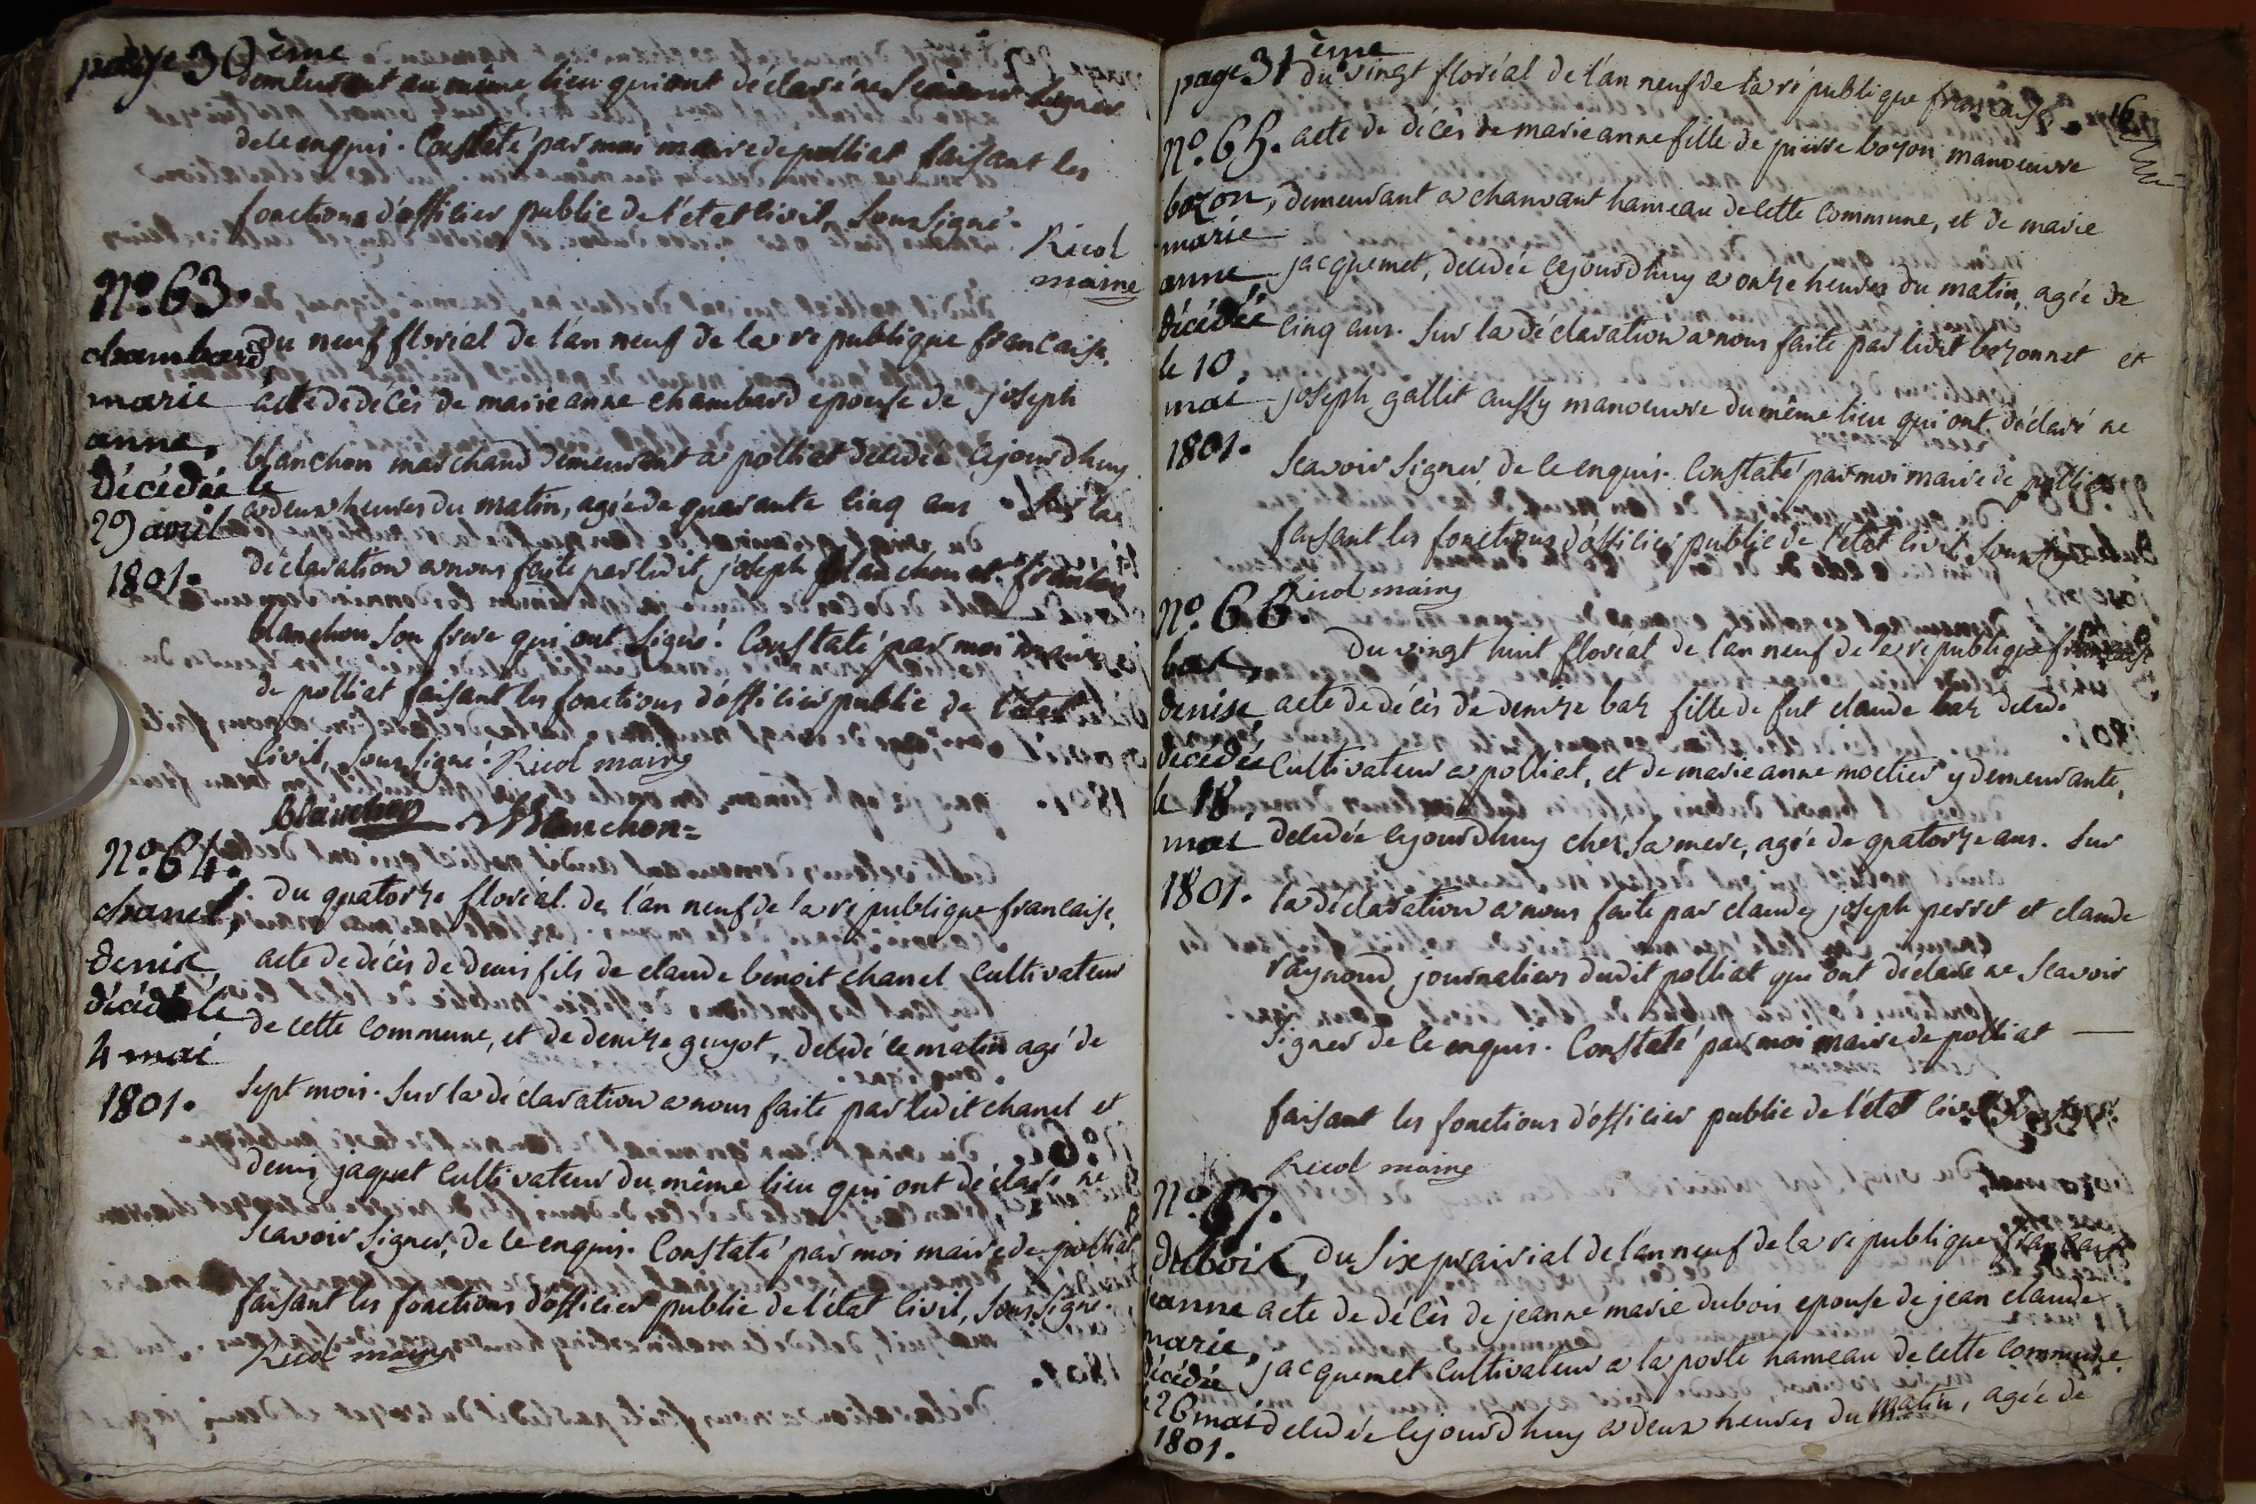 page 30ème
demeurant au même lieu qui ont déclaré ne scavoir signer
de ce enquis. Constaté par moi maire de polliat faisant les
fonctions d'officier public de l'état civil, soussigné.
Ricol
maire
n° 63.
chambard,
marie
anne,
décédée le
29 avril
1801.
Du neuf floréal de l'an neuf de la republique francaise.
acte de décès de marie anne chambard epouse de joseph
blanchon marchand demeurant a polliat decedée cejourdhuy
a deux heures du matin, agée de quarante cinq ans. Sur la
déclaration a nous faite par ledit joseph blanchon et francois
blanchon son frere qui ont signé. Constaté par moi maire
de polliat faisant les fonctions d'officier public de l'état
civil, soussigné. Ricol maire
blanchon Blanchon
n° 64.
chanel,
denis,
décédé le
4 mai
1801.
Du quatorze floréal de l'an neuf de la république francaise.
acte de décès de denis fils de claude benoit chanel cultivateur
de cette commune, et de denize guyot, decedé ce matin agé de
sept mois. Sur la déclaration a nous faite par ledit chanel et
denis jaquet cultivateur du même lieu qui ont déclaré ne
scavoir signer, de ce enquis. Constaté par moi maire de polliat
faisant les fonctions d'officier public de l'état civil, soussigné.
Ricol maire
page 31ème
16
Du vingt floréal de l'an neuf de la république francaise.
n° 65.
bozon,
marie
anne
décédée
le 10
mai
1801.
acte de décès de marie anne fille de pierre bozon manoeuvre
demeurant a chanvant hameau de cette commune, et de marie
jacquemet, decedée cejourdhuy a onze heures du matin, agée de
cinq ans. Sur la déclaration a nous faite par ledit bozonnet et
joseph gallet aussy manoeuvre du même lieu qui ont déclaré ne
scavoir signer, de ce enquis. Constaté par moi maire de polliat
faisant les fonctions d'officier public de l'état civil, soussigné
Ricol maire
n° 66.
baz,
denise
décédée
le 18
mai
1801.
Du vingt huit floréal de l'an neuf de la republique francaise
acte de décès de denize baz fille de fut claude baz décédé
cultivateur a polliat, et de marie anne moctier y demeurante,
decedée cejourdhuy chez sa mere, agée de quatorze ans. Sur
la déclaration a nous faite par claude joseph perret et claude
raymond, journaliers dudit polliat qui ont déclaré ne scavoir
signer de ce enquis. Constaté par moi maire de polliat
faisant les fonctions d'officier public de l'état civil
Ricol maire
n° 67.
dubois,
jeanne
marie,
décédée
26 mai
1801.
Du six prairial de l'an neuf de la république francaise
acte de décès de jeanne marie dubois epouse de jean claude
jacquemet cultivateur a la poste hameau de cette commune.
decedée cejourdhuy a deux heures du matin, agée de